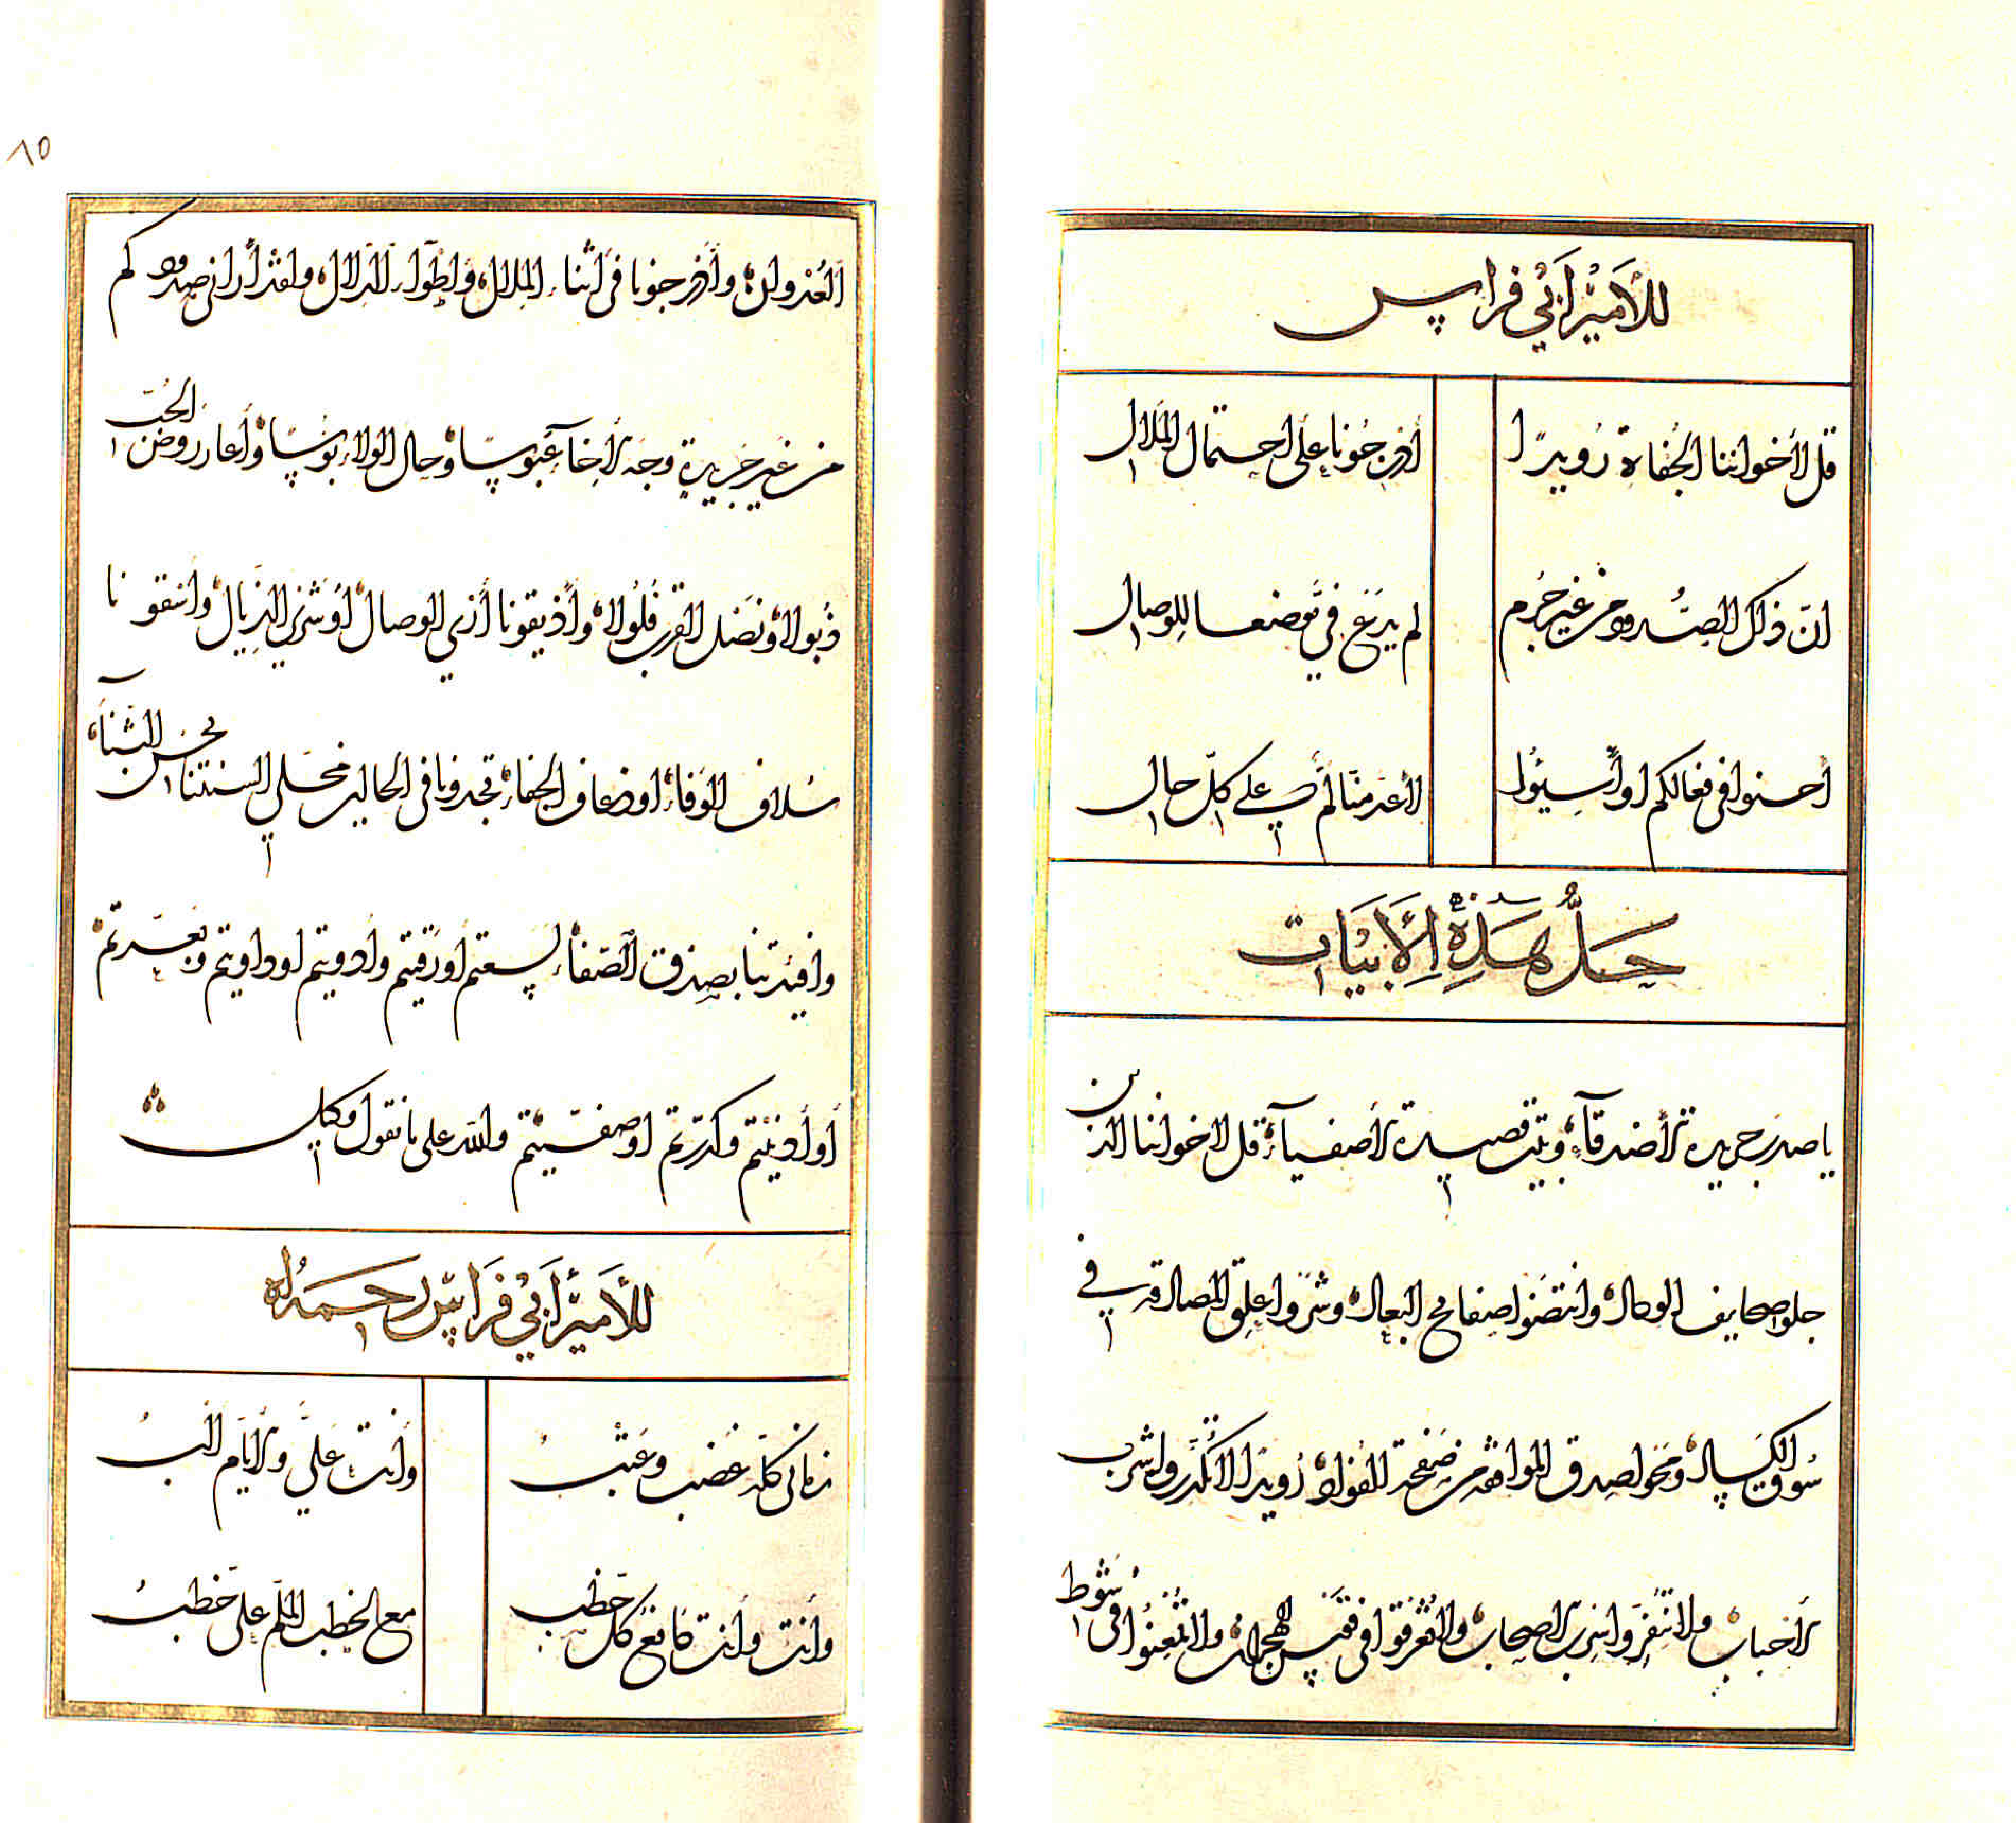 للأمير أبي فراس
قل لأخواننا الجفاة رويدًا
أدرجونا على احتمال الملال
ان ذاك الصدود من غير جرم
لم يدع في موضعا للوصال
أحسنوا في فعالكم او أسيئوا
لا عدمناكم على كل حال
حل هذه الأبيات
يا صدر جريدة الأصدقآء وبيت قصيدة الأصفيآء قل لاخواننا الذين
جلوا صحايف الوداد وانتضوا صفايح البعاد وشروا علق المصادقه في
سوق الكساد ومحوا صدق الموافقه من صفحة الفواد رويدًا لا تكدروا شرب
الأحباب ولا تنفروا سرب الأصحاب ولا تغرقوا في قوس الهجران ولا تمعنوا في شوط
العدوان وأدرجونا في أثناء الملال وأطواء الدلال ولقد أراني صدودكم
من غير جريرة وجه الأخآء عبوسا وحال الولاء بوسا وأعار روض الحب
ذبولا ونصل القرب فلولا وأذيقونا أري الوصال او شري الزيال وأسقونا
سلاف الوفاء او ضعاف الجفاء تجدونا في الحالين محلي السنتنا بحسن الثناء
وافيدتنا بصدق الصفاء لسعتم أو رقيتم وأدويتم او داويتم وبعدتم
أو أدنيتم وكدرتم او صفيتم والله على ما نقول وكيل
للأمير أبي فراس رحمه الله
زماني كله غضب وعتب
وأنت علي والأيام الب
وأنت وأنت دافع كل خطب
مع الخطب الملم على خطب
٨٥